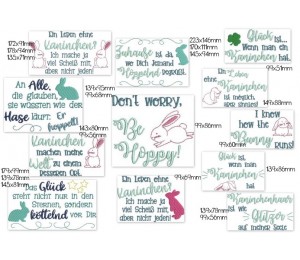 Ein Leben ohne
Kaninchen?
Ich mache ja
viel Scheiß mit,
aber nicht jeden!
172x91mm
178x94mm
135x71mm
Zuhause ist da
wo Dich Jemand
Hoppelnd
223x146mm
170x111mm
145x94mm
Glück ist...
wenn man ein
Kaninchen hat.
An Alle,
die glauben,
sie wüssten wie der
Hase läuft: Er
hoppelt!
139x93mm
99x66mm
Don't worry,
Be
Hoppy!
Ein Leben
ohne
Kaninchen
ist möglich
aber sinnlos
99x51mm
I know
how the
Bunny
runs!
Kaninchen machen
meine Welt
zu einem
besseren Ort.
143x80mm
99x56mm
139x99mm
Glück ist,
wenn man
Kaninchen
hat!
99x56mm
Das Glück
steht nicht nur in den
Sternen, sondern
köttelnd vor Dir
179x99mm
139x78mm
Ein Leben ohne
Kaninchen?
Ich mache ja
viel Scheiß mit,
aber nicht jeden!
99x69mm
Kaninchenhaar
ist wie
Glitzer
auf meiner Seele
139x78mm
99x56mm